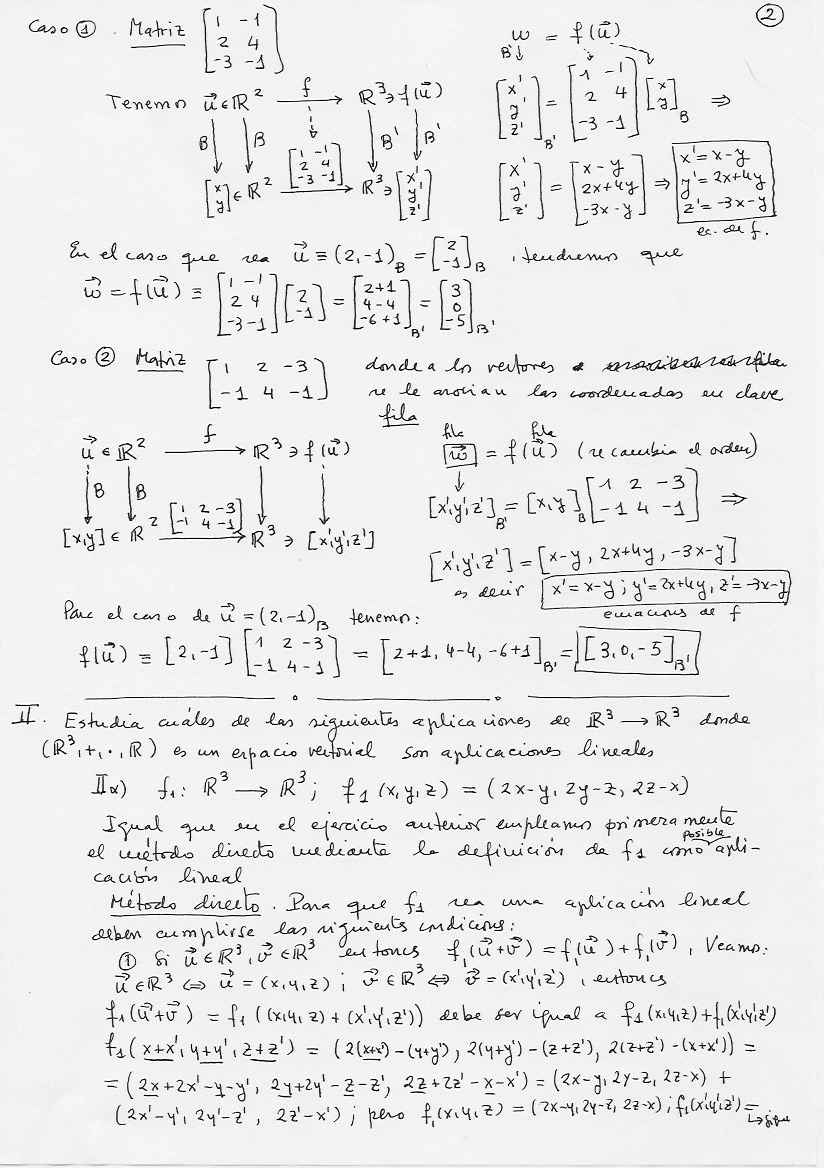 ②
Caso ① . Matriz [1 -1; 2 4; -3 -1]
w = f(u⃗)
B'↓
[x'; y'; z']B' = [1 -1; 2 4; -3 -1] [x; y]B ⇒
Tenemos u⃗ ∈ ℝ² —f→ ℝ³ ∋ f(u⃗)
B↓ ↓B ↓B' ↓B'
[x; y] ∈ ℝ² —[1 -1; 2 4; -3 -1]→ ℝ³ ∋ [x'; y'; z']
[x'; y'; z']B' = [x-y; 2x+4y; -3x-y] ⇒ x' = x-y
y' = 2x+4y
z' = -3x-y
ec. de f.
En el caso que sea u⃗ ≡ (2,-1)B = [2; -1]B , tendremos que
w⃗ = f(u⃗) ≡ [1 -1; 2 4; -3 -1] [2; -1] = [2+1; 4-4; -6+1]B' = [3; 0; -5]B'
Caso ② Matriz [1 2 -3; -1 4 -1] donde a los vectores
se le asocian las coordenadas en clave
fila
u⃗ ∈ ℝ² —f→ ℝ³ ∋ f(u⃗)
↓B ↓B ↓ ↓
[x,y] ∈ ℝ² —[1 2 -3; -1 4 -1]→ ℝ³ ∋ [x',y',z']
fila fila
w⃗ = f(u⃗) (se cambia el orden)
[x',y',z']B' = [x,y]B [1 2 -3; -1 4 -1] ⇒
[x',y',z'] = [x-y, 2x+4y, -3x-y]
es decir x'=x-y ; y'=2x+4y, z'=-3x-y
ecuaciones de f
Para el caso de u⃗ = (2,-1)B tenemos:
f(u⃗) ≡ [2,-1] [1 2 -3; -1 4 -1] = [2+1, 4-4, -6+1]B' = [3,0,-5]B'
II. Estudia cuáles de las siguientes aplicaciones de ℝ³ → ℝ³ donde
(ℝ³,+,·,ℝ) es un espacio vectorial son aplicaciones lineales
IIα) f₁: ℝ³ → ℝ³; f₁(x,y,z) = (2x-y, 2y-z, 2z-x)
Igual que en el ejercicio anterior empleamos primeramente
el método directo mediante la definición de f₁ como posible apli-
cación lineal
Método directo. Para que f₁ sea una aplicación lineal
deben cumplirse las siguientes condiciones:
① Si u⃗ ∈ ℝ³, v⃗ ∈ ℝ³ entonces f₁(u⃗+v⃗) = f₁(u⃗) + f₁(v⃗), Veamos:
u⃗ ∈ ℝ³ ⇔ u⃗ = (x,y,z) ; v⃗ ∈ ℝ³ ⇔ v⃗ = (x',y',z') , entonces
f₁(u⃗+v⃗) = f₁((x,y,z) + (x',y',z')) debe ser igual a f₁(x,y,z)+f₁(x',y',z')
f₁(x+x', y+y', z+z') = (2(x+x')-(y+y'), 2(y+y')-(z+z'), 2(z+z')-(x+x')) =
= (2x+2x'-y-y', 2y+2y'-z-z', 2z+2z'-x-x') = (2x-y, 2y-z, 2z-x) +
(2x'-y', 2y'-z', 2z'-x') ; pero f₁(x,y,z) = (2x-y, 2y-z, 2z-x) ; f₁(x',y',z') =
↳ sigue